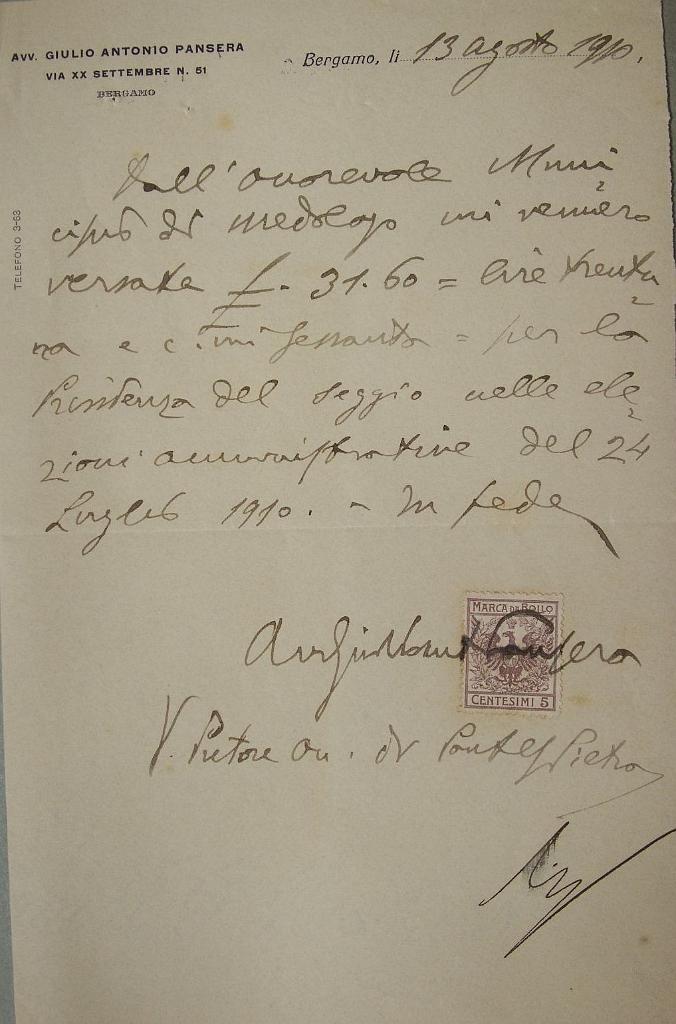 AVV. GIULIO ANTONIO PANSERA
VIA XX SETTEMBRE N. 51
BERGAMO
Bergamo, li 13 agosto 1910.
TELEFONO 3-63
Dall'onorevole Muni
cipio di Medolago mi vennero
versate £. 31.60 = lire trentu
na e c.mi sessanta = per la
Presidenza del seggio nelle ele
zioni amministrative del 24
Luglio 1910. - In fede
MARCA DA BOLLO
Avv Giulio Ant Pansera
CENTESIMI 5
V. Pretore On. di Ponte S Pietro